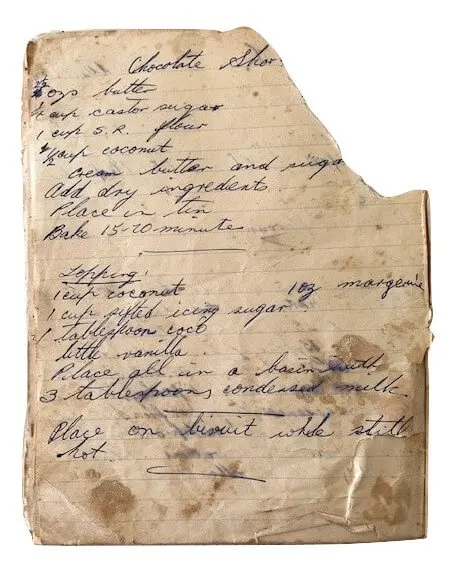 Chocolate Shor
ozs butter
cup castor sugar
1 cup S.R. flour
1/2 cup coconut
Cream butter and suga
Add dry ingredients.
Place in tin
Bake 15-20 minutes
Topping:
1 cup coconut 1oz margerine
1 cup sifted icing sugar
1 tablespoon coco
little vanilla.
Place all in a basin with
3 tablespoons condensed milk.
Place on biscuit while still
hot.